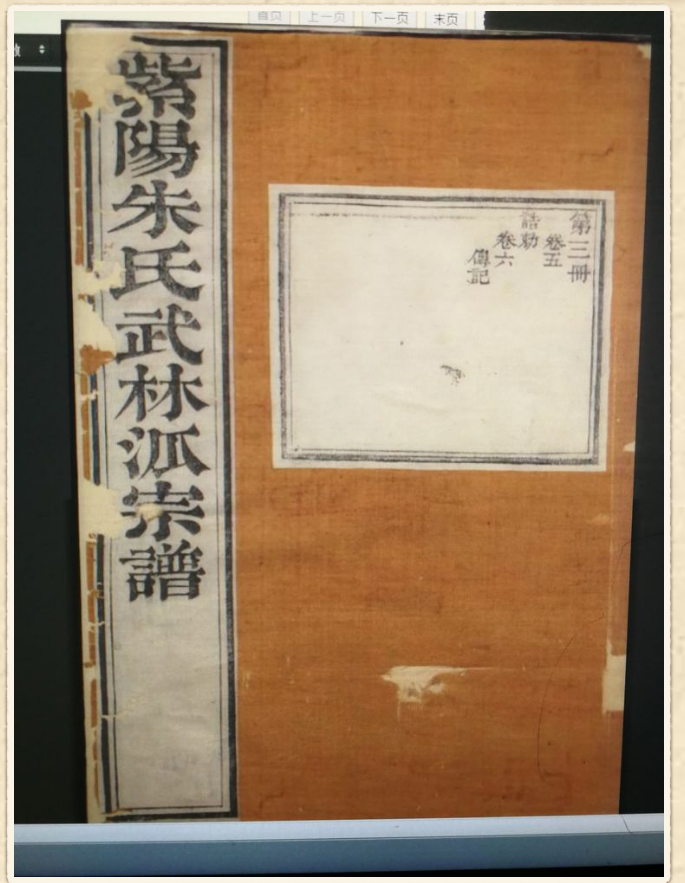 首页 上一页 下一页 末页
紫陽朱氏武林派宗譜
第三冊
卷五
誥勅
卷六
傳記